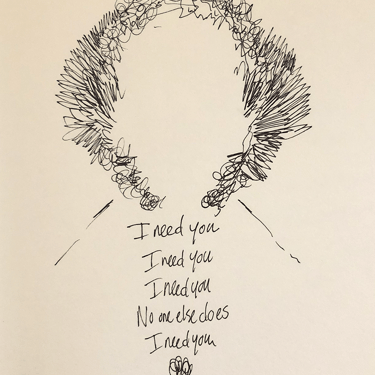 I need you
I need you
I need you
No one else does
I need you